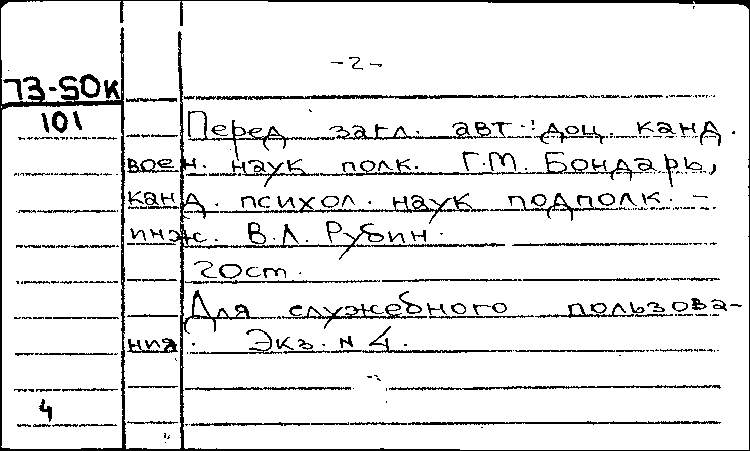 -2-
73-50к
101
Перед загл. авт.: доц. канд.
воен. наук полк. Г.М. Бондарь,
канд. психол. наук подполк. -
инж. В.Л. Рубин.
20cm.
Для служебного пользова-
ния. Экз. N 4.
4